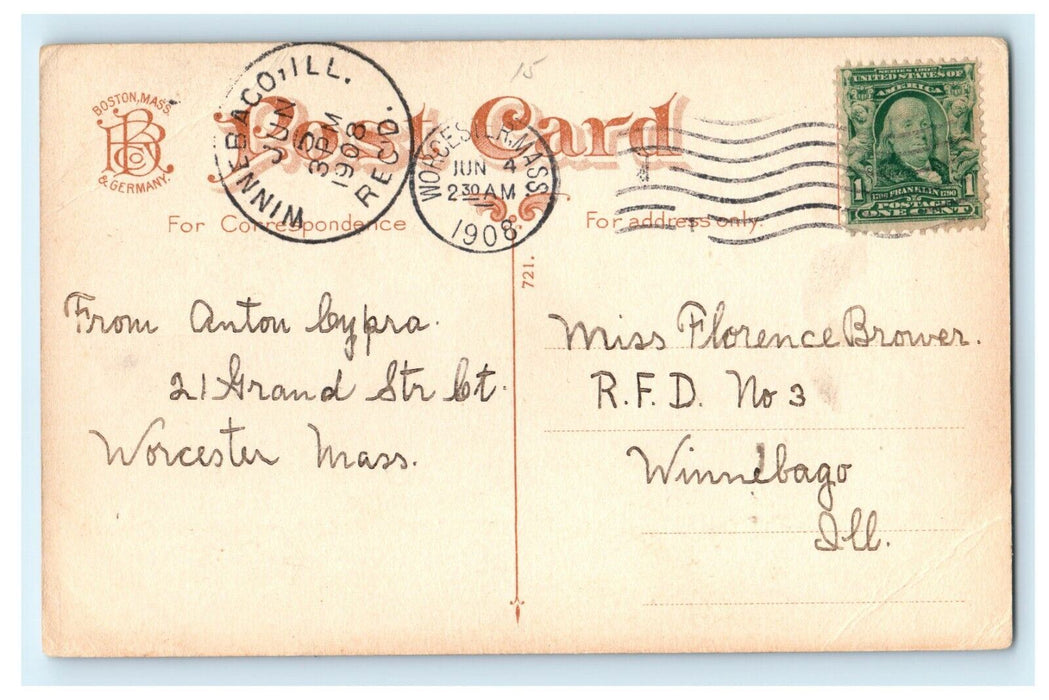 15
BOSTON, MASS.
& GERMANY.
Post Card
WINNEBAGO, ILL.
JUN
3 PM
1908
REC'D.
WORCESTER, MASS.
JUN 4
2 30 AM
1908
SERIES 1902
UNITED STATES OF
AMERICA
FRANKLIN
1 POSTAGE 1
ONE CENT
For Correspondence
For address only.
721.
From Anton Cypra.
21 Grand Str Ct.
Worcester Mass.
Miss Florence Brower.
R.F.D. No 3
Winnebago
Ill.